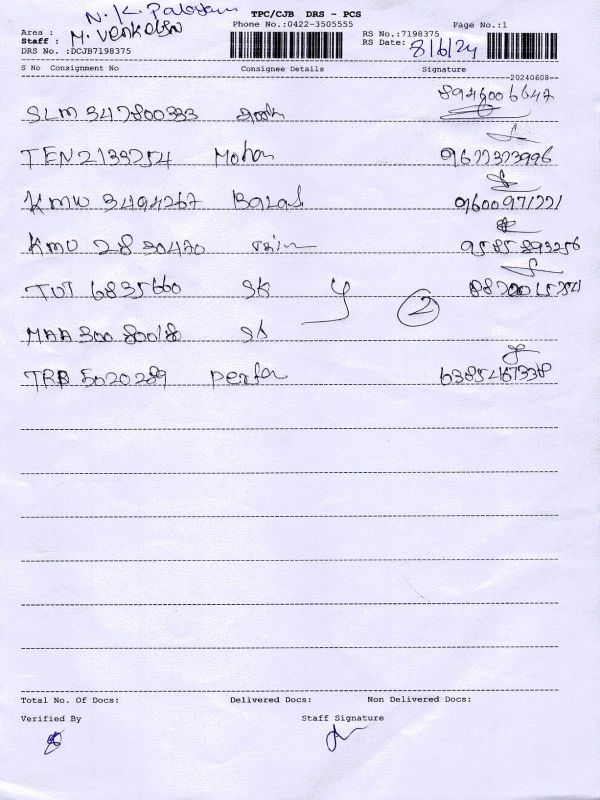 N. K. Palayam
TPC/CJB DRS - PCS
Phone No.:0422-3505555
Page No.:1
Area :
Staff : M. Venkatesh
DRS No. :DCJB7198375
RS No.:7198375
RS Date: 8/6/24
S No Consignment No Consignee Details Signature
20240608
8946006647
SLM 347800333
TEN 2133254 Mohan 9677373996
KMU 3494267 Balaji 91600971221
KMU 2830470 9585893256
TUT 6835660 SK
y 2
MAA 300 80018 SK
TRB 5020289 Perfa 6385467338
Total No. Of Docs: Delivered Docs: Non Delivered Docs:
Verified By Staff Signature